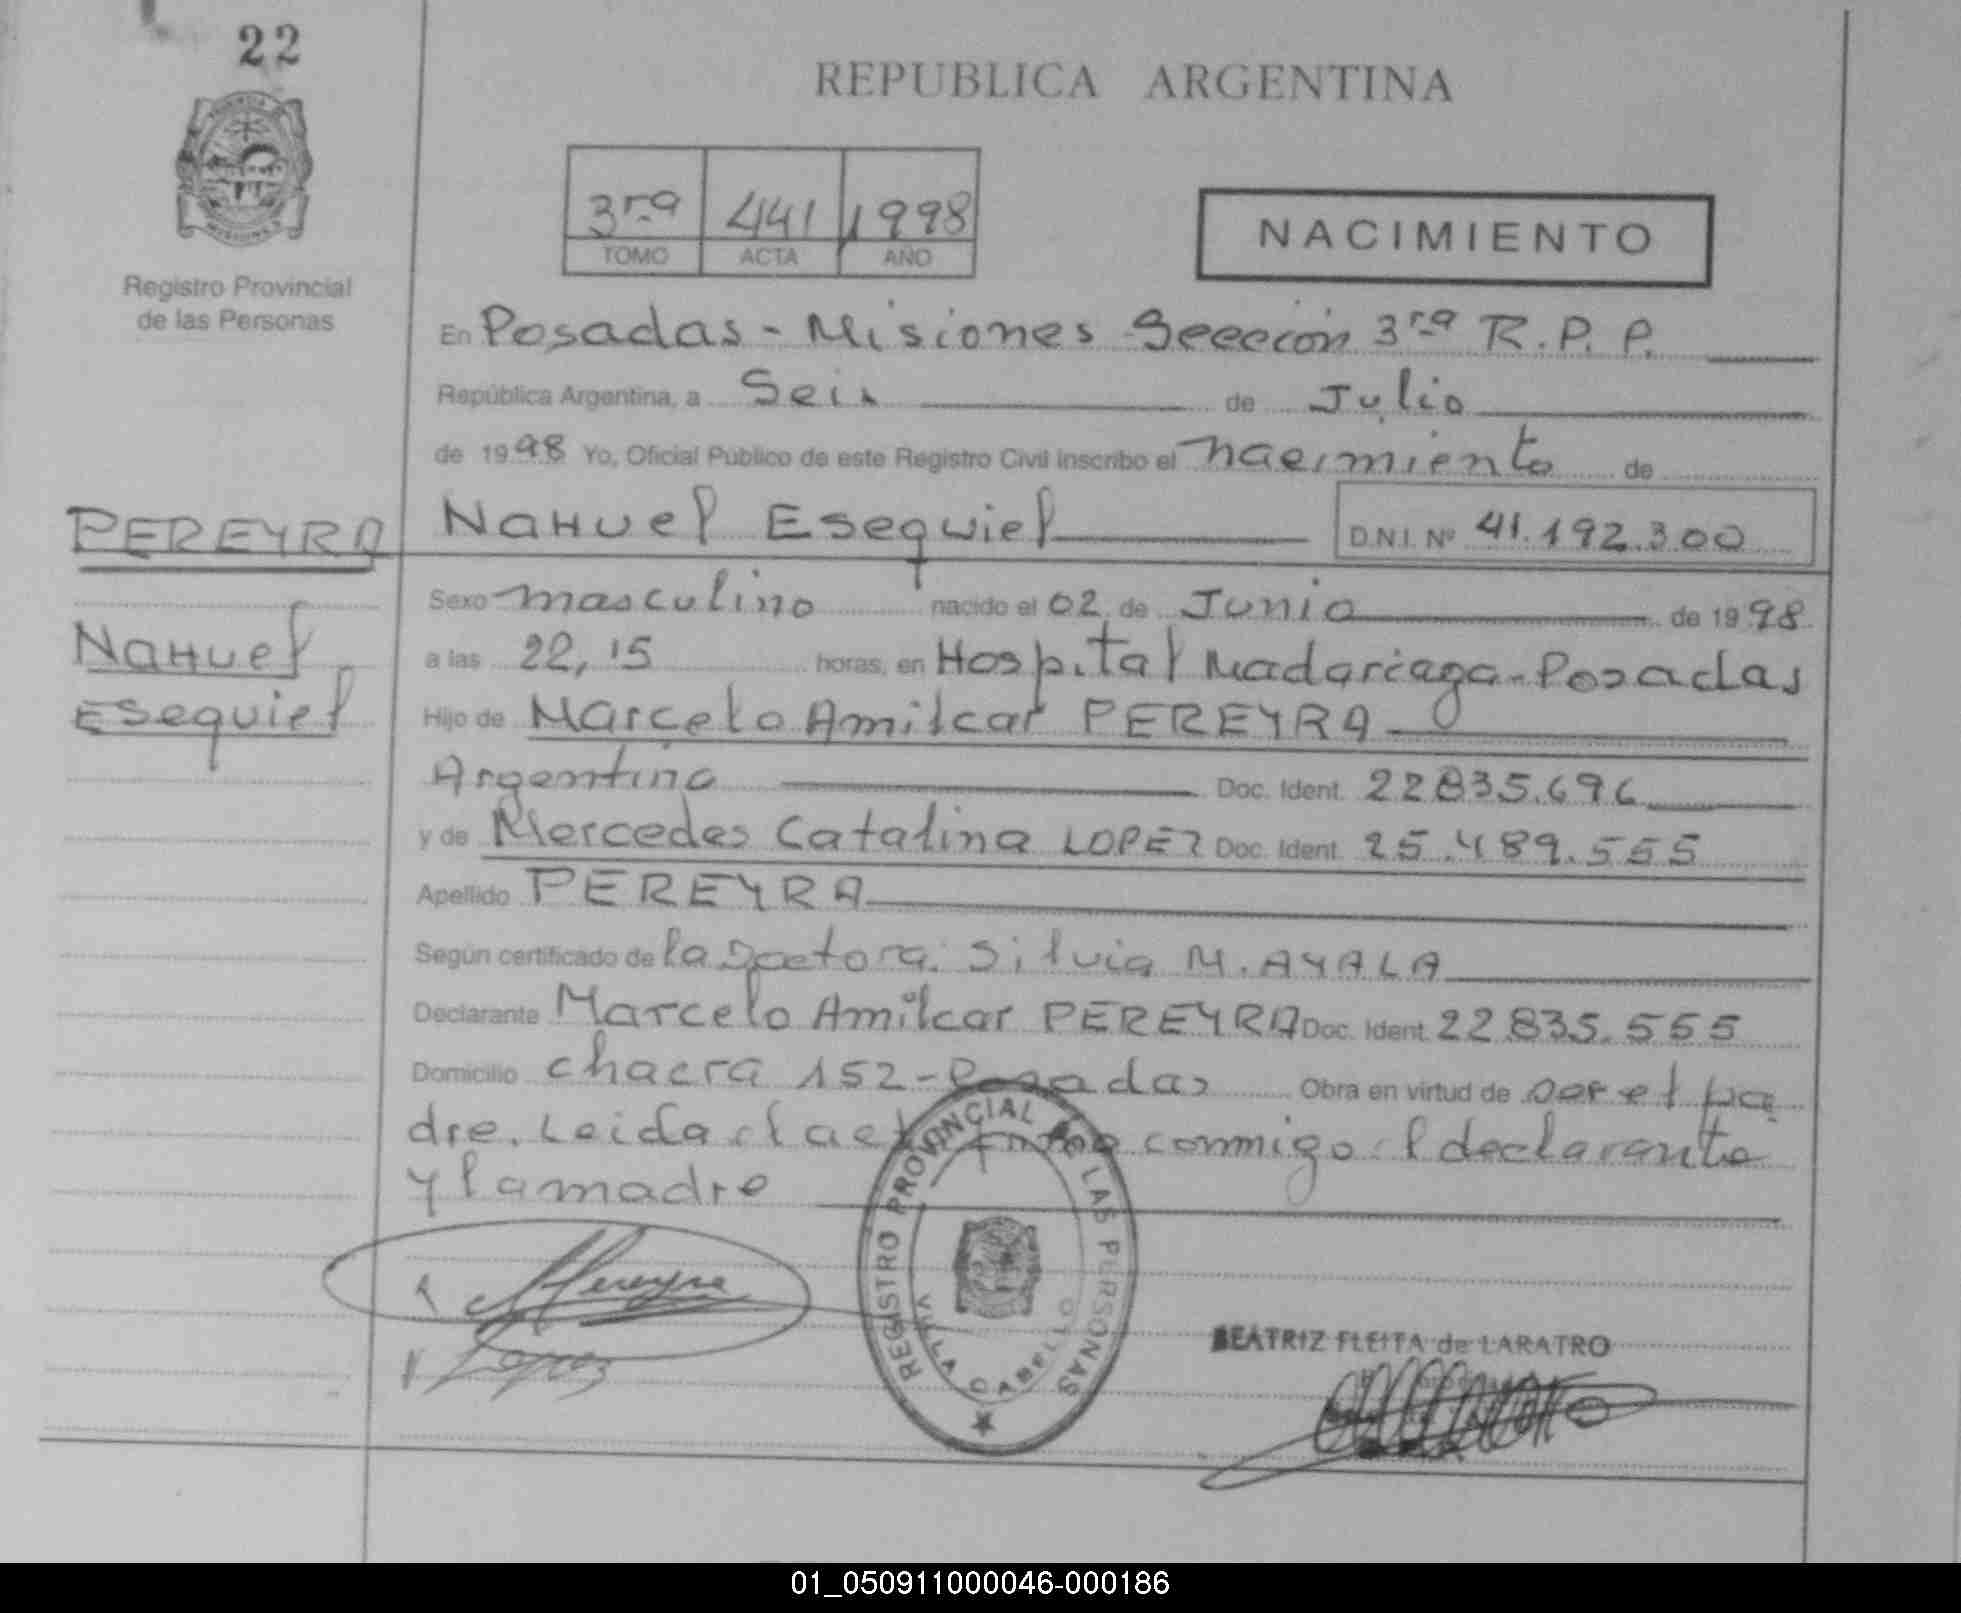 22
REPUBLICA ARGENTINA
3ra 441 1998
TOMO ACTA AÑO
NACIMIENTO
Registro Provincial
de las Personas
En Posadas - Misiones Sección 3ra R.P.P.
República Argentina, a Seis de Julio
de 1998 Yo, Oficial Público de este Registro Civil inscribo el nacimiento de
PEREYRA Nahuel Esequiel D.N.I. Nº 41.192.300
Sexo masculino nacido el 02 de Junio de 1998
Nahuel
a las 22,15 horas, en Hospital Madariaga - Posadas
Esequiel
Hijo de Marcelo Amilcar PEREYRA
Argentino Doc. Ident. 22835.696
y de Mercedes Catalina LOPEZ Doc. Ident. 25.489.555
Apellido PEREYRA
Según certificado de la Doctora: Silvia M. AYALA
Declarante Marcelo Amilcar PEREYRA Doc. Ident. 22.835.555
Domicilio chacra 152 - Posadas Obra en virtud de ser el pa
dre. Leida el acta firma conmigo el declarante
y la madre
REGISTRO PROVINCIAL DE LAS PERSONAS
VILLA CABELLO
Pereyra
Lopez
BEATRIZ FLEITA de LARATRO
01_050911000046-000186